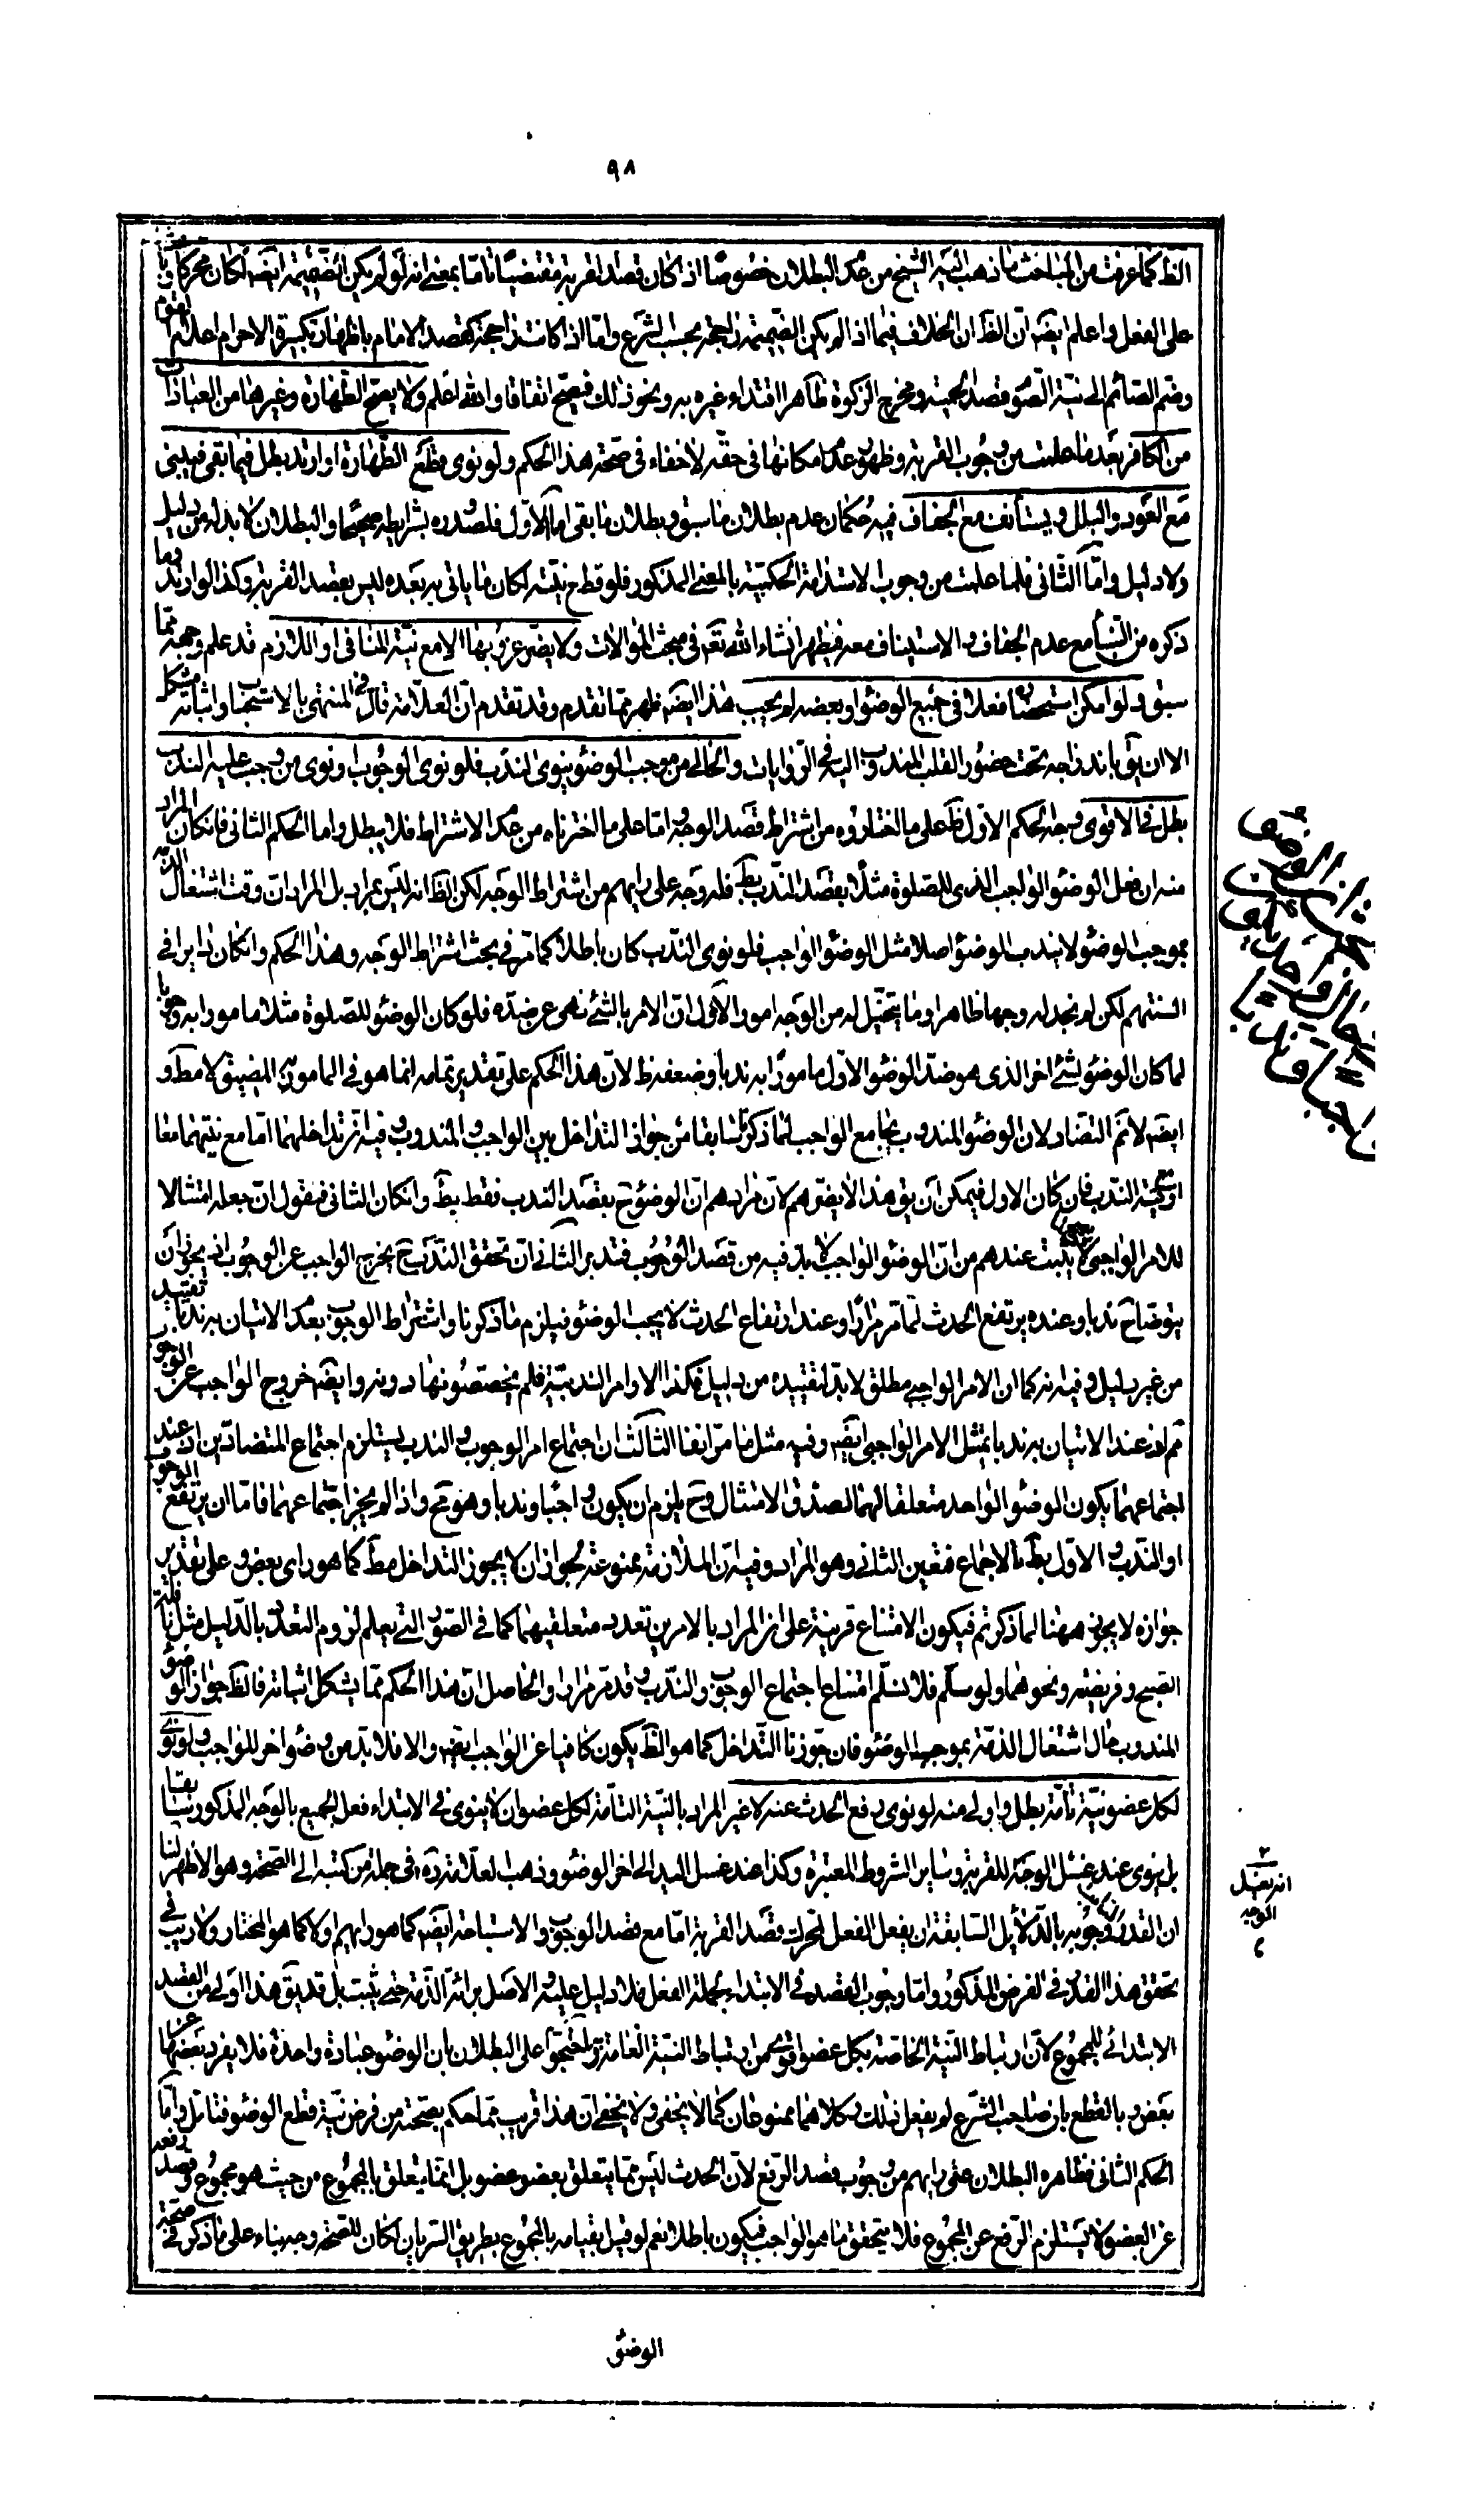 ٩٨
الظ كما عرفت من المباحث ما ذهب اليه الشيخ من عدم البطلان خصوصا اذا كان قصد القربة مقتضيا تاما بمعنى انه لو لم يكن الضميمة ايضه لكان محركا
على الفعل واعلم ايضه ان الظ ان الخلاف فيما اذا لم يكن الضميمة راجحة بحسب الشرع واما اذا كانت راجحة كقصد الامام باظهار تكبيرة الاحرام اعلام القوم
وضم الصائم الى نية الصوم قصد الحمية ومخرج الزكوة ظاهرا اقتداء غيره به ونحو ذلك فيصح اتفاقا والله اعلم ولا يصح الطهارة وغيرها من العبادات
من الكافر بعد ما علمت من وجوب القربة وظهور عدم امكانها في حقه لا خفاء في صحة هذا الحكم ولو نوى قطع الطهارة او ارتد بطل فيما بقى فيبنى
مع العود والبلل ويستأنف مع الجفاف فيه حكمان عدم بطلان ما سبق وبطلان ما بقى اما الاول فلصدوره بشرايطه صحيحا والبطلان لا بد له من دليل
ولا دليل واما الثاني فلما علمت من وجوب الاستدامة الحكمية بالمعنى المذكور فلو قطع نيته لكان ما ياتي به بعده ليس بقصد القربة وكذا لو ارتد وما
ذكره من البناء مع عدم الجفاف والاستيناف معه فيظهر انشاء الله تعم في مبحث الموالات ولا يضر عزوبها الا مع نية المنافى او اللازم قد علم وجهه مما
سبق ولو امكن استحضارها فعلا في جميع الوضوء او بعضه لم يجب هذا ايضه ظهر مما تقدم وقد تقدم ان العلامة قال في المنتهى بالاستحباب واثباته مشكل
الا ان يق باندراجه تحت حضور القلب المندوب اليه في الروايات والخالي من موجب الوضوء ينوى الندب فلو نوى الوجوب او نوى من وجب عليه الندب
بطل في الاقوى وجه الحكم الاول ظ على ما اختاروه من اشتراط قصد الوجه اما على ما اخترناه من عدم الاشتراط فلا يبطل واما الحكم الثاني فان كان المراد
منه ان فعل الوضوء الواجب الذى للصلوة مثلا بقصد الندب بط فله وجه على رايهم من اشتراط الوجه لكن الظ انه ليس بمراد بل المراد ان وقت اشتغال الذمة
بموجب الوضوء لا يندب الوضوء اصلا مثل الوضوء الواجب فلو نوى الندب كان باطلا كما مر في بحث اشتراط الوجه وهذا الحكم وان كان داير في
السنتهم لكن لم نجد له وجها ظاهرا وما يتخيل له من الوجه امور الاول ان الامر بالشئ نهى عن ضده فلو كان الوضوء للصلوة مثلا مامورا به وجوبا
لما كان الوضوء لشئ اخر الذى هو ضد الوضوء الاول مامورا به ندبا وضعفه ظ لان هذا الحكم على تقدير تمامه انما هو في المامور به المضيق لا مط و
ايضه لا نم التضاد لان الوضوء المندوب يجامع الواجب لما ذكرنا سابقا من جواز التداخل بين الواجب والمندوب وفيه انه تداخلهما اما مع نيتهما معا
او نية الندب فان كان الاول فيمكن ان يق هذا لا يضرهم لان مرادهم ان الوضوء ح بقصد الندب فقط بط وان كان الثاني فنقول ان جعله امتثالا
للامر الواجبى لا يثبت عندهم من ان الوضوء الواجب لا بد فيه من قصد الوجوب فتدبر الثاني ان تحقق الندب ح يخرج الواجب عن الوجوب اذ يجوز ان
يتوضا ح ندبا وعنده يرتفع الحدث لما مر مرارا وعند ارتفاع الحدث لا يجب الوضوء فيلزم ما ذكرنا واشتراط الوجوب بعدم الاتيان به ندبا تقييد
من غير دليل وفيه انه كما ان الامر الواجبى مطلق لا بد لتقييده من دليل فكذا الاوامر الندبية فلم يخصصونها دونه وايضه خروج الواجب عن الوجوب
مم اذ عند الاتيان به ندبا يمتثل الامر الواجبى ايضه وفيه مثل ما مر انفا الثالث ان اجتماع امر الوجوب والندب يستلزم اجتماع المتضادين اذ عند
اجتماعهما يكون الوضوء الواحد متعلقا لهما لصدق الامتثال وح يلزم ان يكون واجبا وندبا وهو مح واذا لم يجز اجتماعهما فاما ان يرتفع الوجوب
او الندب والاول بط بالاجماع فتعين الثاني وهو المراد وفيه ان الملازمة ممنوعة لجواز ان لا يجوز التداخل مط كما هو راى بعض وعلى تقدير
جوازه لا يجوز ههنا لما ذكرتم فيكون الامتناع قرينة على ان المراد بالامرين تعدد متعلقيهما كما في الصور التي يعلم لزوم التعدد بالدليل مثل نافلة
الصبح وفريضته ونحوهما ولو سلم فلا نسلم امتناع اجتماع الوجوب والندب وقد مر مرارا والحاصل ان هذا الحكم مما يشكل اثباته فالظ جواز الوضوء
المندوب حال اشتغال الذمة بموجب الوضوء فان جوزنا التداخل كما هو الظ يكون كافيا عن الواجب ايضه والا فلا بد من وضوء اخر للواجب ولو نوى
لكل عضو نية تامة بطل واولى منه لو نوى رفع الحدث عنه لا غير المراد بالنية التامة لكل عضو ان لا ينوى في الابتداء فعل الجميع بالوجه المذكور سابقا
بل ينوى عند غسل الوجه للقربة وساير الشروط المعتبرة وكذا عند غسل اليد الى اخر الوضوء وذهب العلامة ره في جملة من كتبه الى الصحة وهو الاظهر لنا
ان القدر وجوبه بالدلايل السابقة ان يفعل الفعل لمحرك قصد القربة اما مع قصد الوجوب والاستباحة ايضه كما هو رايهم او لا كما هو المختار ولا ريب في
تحقق هذا القدر في الفرض المذكور واما وجوب القصد في الابتداء بجملة الفعل فلا دليل عليه والاصل برائة الذمة حتى يثبت بل قد يق هذا اولى من القصد
الابتدائى للمجموع لان ارتباط النية الخاصة بكل عضو اقوى من ارتباط النية العامة واحتجوا على البطلان بان الوضوء عبادة واحدة فلا يفرد بعضها عن
بعض وبالقطع بان صاحب الشرع لم يفعل ذلك وكلاهما ممنوعان كما لا يخفى ولا يخفى ان هذا قريب مما حكم بصحته من فرض نية قطع الوضوء فتامل واما
الحكم الثاني فظاهره البطلان على رايهم من وجوب قصد الرفع لان الحدث ليس مما يتعلق بعضو عضو بل انما يتعلق بالمجموع من حيث هو مجموع وقصد رفعه
عن العضو لا يستلزم الرفع عن المجموع فلا يتحقق ما هو الواجب فيكون باطلا نعم لو قيل بقيامه بالمجموع بطريق السريان لكان للصحة وجه بناء على ما ذكر في صحة
الوضوء